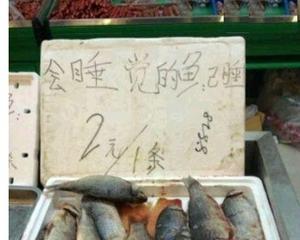 会睡觉的鱼已睡
2元/条
8.8.28